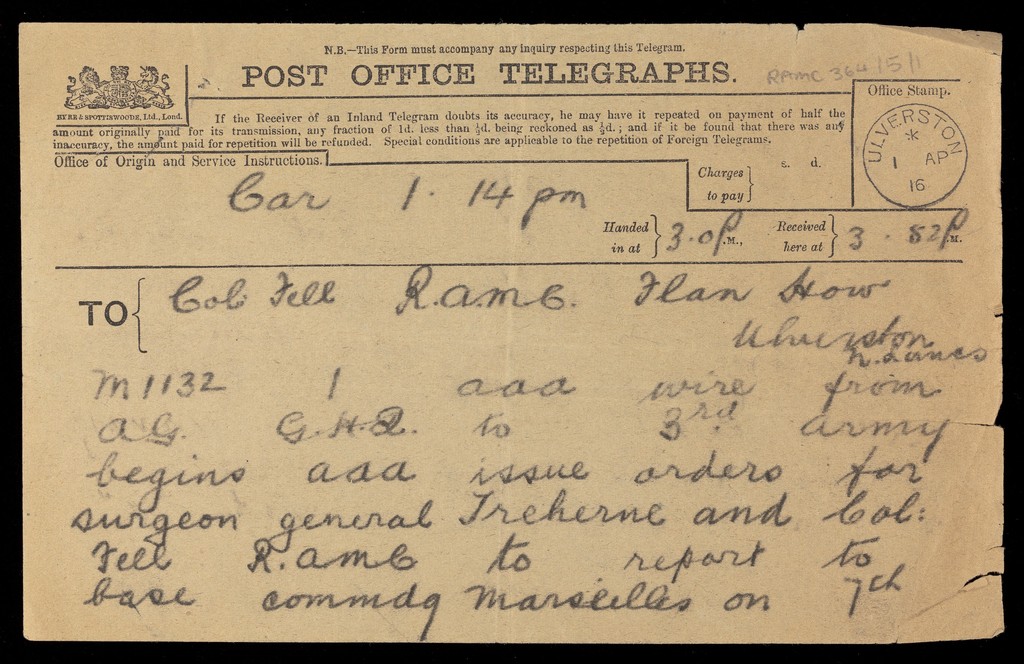 N.B.—This Form must accompany any inquiry respecting this Telegram.
POST OFFICE TELEGRAPHS.
RAMC 364/5/1
EYRE & SPOTTISWOODE, Ltd., Lond.
If the Receiver of an Inland Telegram doubts its accuracy, he may have it repeated on payment of half the
amount originally paid for its transmission, any fraction of 1d. less than ½d. being reckoned as ½d.; and if it be found that there was any
inaccuracy, the amount paid for repetition will be refunded. Special conditions are applicable to the repetition of Foreign Telegrams.
Office of Origin and Service Instructions.
Office Stamp.
ULVERSTON
1 AP
16
Charges to pay
s. d.
Car 1.14 pm
Handed in at 3.0 P.M.,
Received here at 3.52 P.M.
TO Col Fell R.A.M.C. Flan How
Ulverston
N. Lancs
M1132 1 aaa wire from
AG. G.H.Q. to 3rd army
begins aaa issue orders for
surgeon general Treherne and Col:
Fell R.AMC to report to
base commdg Marseilles on 7th